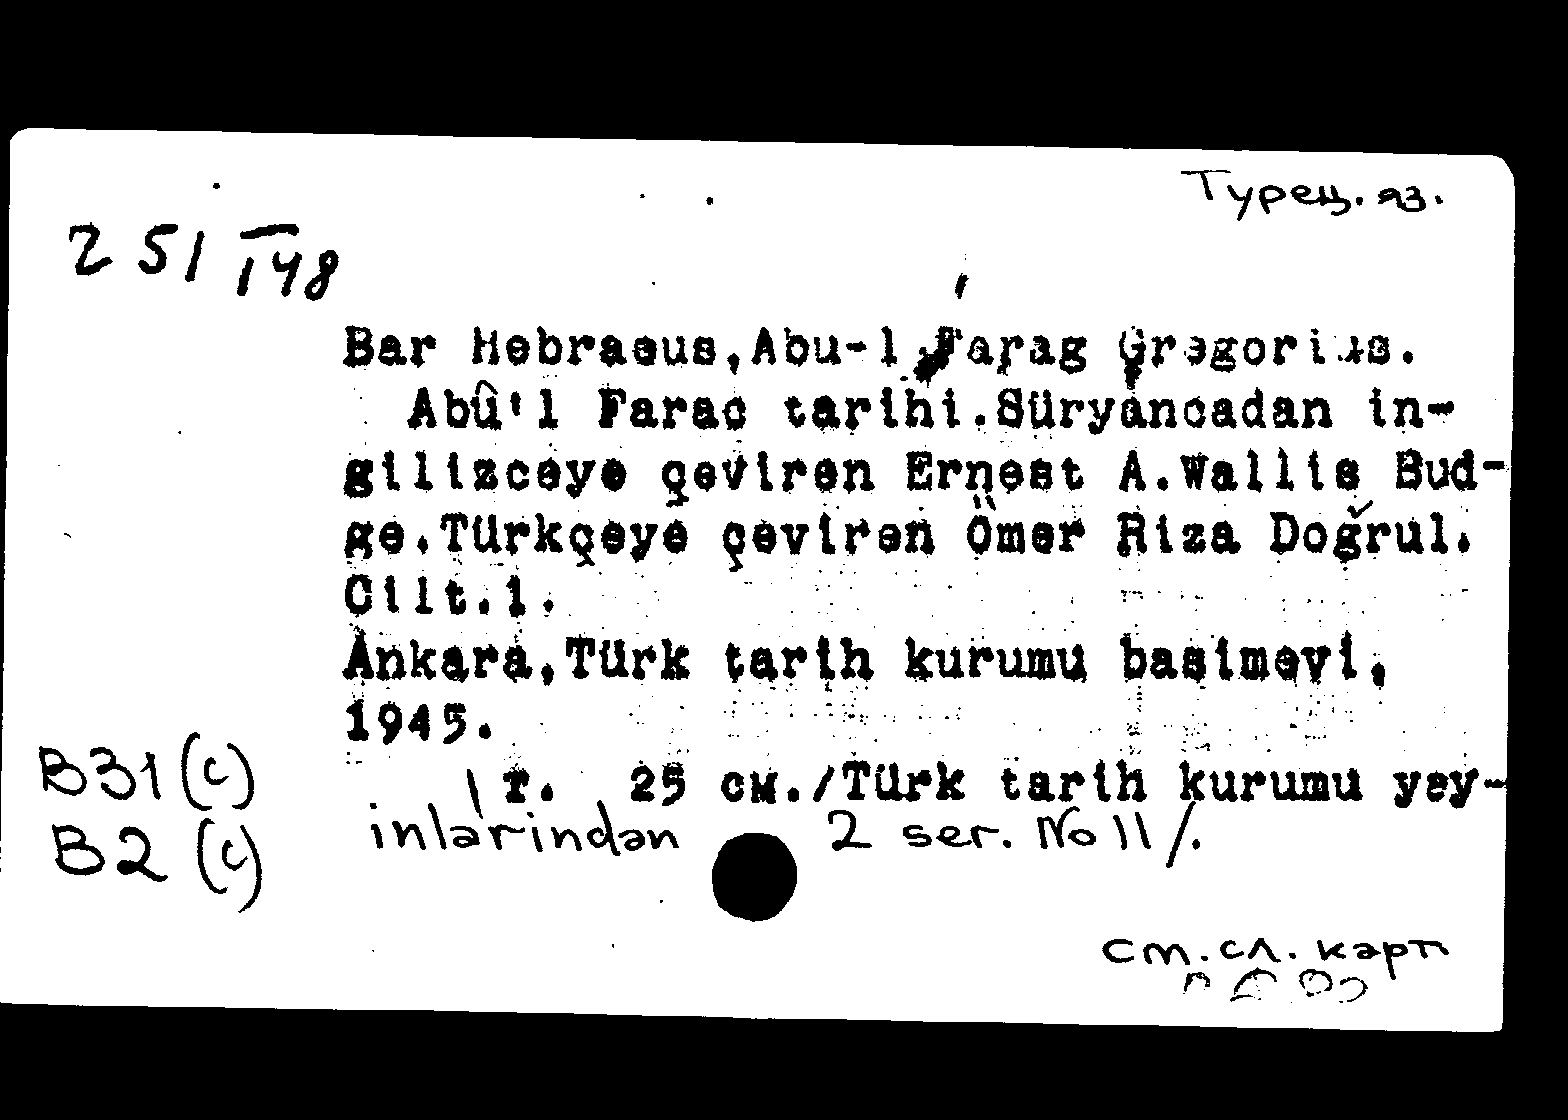 Турец. яз.
251
148
Bar Hebraeus, Abu-l Farag Gregorius.
Abû'l Farac tarihi. Süryâncadan in-
gilizceye çeviren Ernest A. Wallis Bud-
ge. Türkçeye çeviren Ömer Riza Doğrul.
Cilt. 1.
Ankara, Türk tarih kurumu basimevi,
1945.
B31 (c)
1 т. 25 см. /Türk tarih kurumu yay-
B2 (c)
inlarindan 2 ser. No 11/.
см. сл. карт